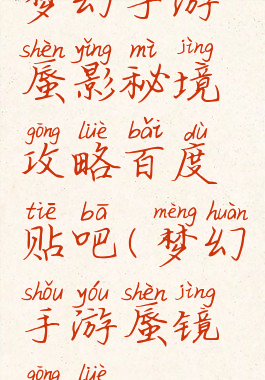 梦幻手游
shèn yǐng mì jìng
蜃影秘境
gōng lüè bǎi dù
攻略百度
tiē bā mèng huàn
贴吧(梦幻
shǒu yóu shèn jìng
手游蜃镜
gōng lüè